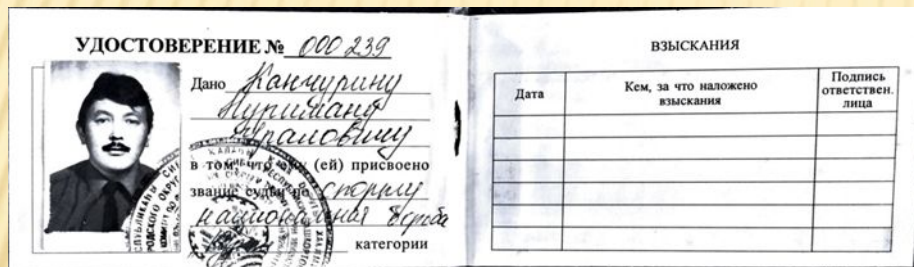 УДОСТОВЕРЕНИЕ № 000 239
Дано Канчурину
Нуриману
Ураловичу
в том, что ему (ей) присвоено
звание судьи по спорту
национальная борьба
категории
ВЗЫСКАНИЯ
Дата
Кем, за что наложено
взыскания
Подпись
ответствен.
лица